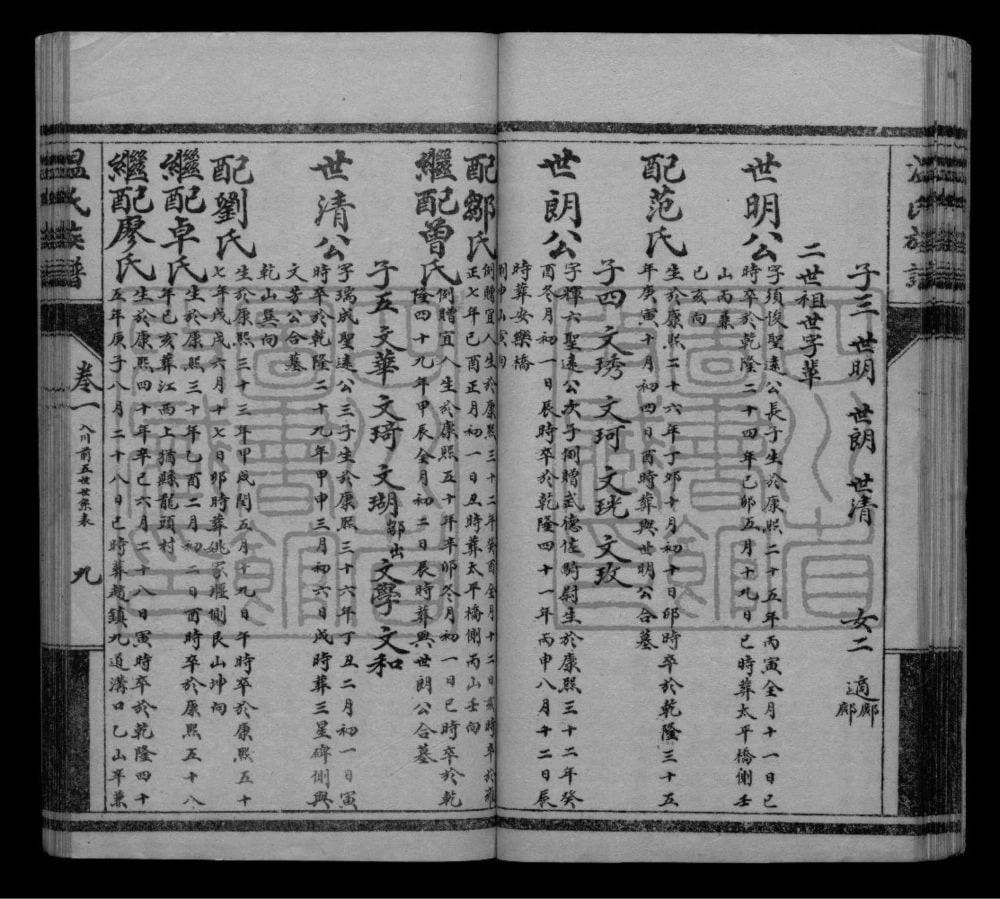 子三 世明 世朗 世清 女二 適鄢鄢
二世祖世字輩
世明公
字項俊聖遠公長子生於康熙二十五年丙寅全月十一日已
時卒於乾隆二十四年已卯五月十九日已時葬太平橋側壬
山丙兼
已亥向
配范氏
生於康熙二十六年丁卯十月初十日卯時卒於乾隆三十五
年庚寅十月初四日酉時葬與世明公合墓
子四 文琇 文珂 文珖 文玫
世朗公
字輝六聖遠公次子例贈武德佐騎尉生於康熙三十二年癸
酉冬月初一日辰時卒於乾隆四十一年丙申八月十二日辰
時葬安樂橋
側申山寅向
配鄒氏
例贈宜人生於康熙三十二年癸酉全月十二日亥時卒於雍
正七年己酉正月初一日丑時葬太平橋側丙山壬向
繼配曾氏
例贈宜人生於康熙五十年辛卯冬月初一日已時卒於乾
隆四十九年甲辰全月初二日辰時葬與世朗公合墓
子五 文華 文琦 文瑚 鄒出 文學 文和
世清公
字瑞成聖遠公三子生於康熙三十六年丁丑二月初一日寅
時卒於乾隆二十九年甲申三月初六日戌時葬三星碑側與
文芳公合墓
乾山巽向
配劉氏
生於康熙三十三年甲戌閏五月十九日午時卒於康熙五十
七年戊戌六月十七日卯時葬姚家堰側艮山坤向
繼配卓氏
生於康熙三十年乙酉二月初二日酉時卒於康熙五十八
年已亥葬江西上猶縣龍頭村
繼配廖氏
生於康熙四十年辛巳六月二十八日寅時卒於乾隆四十
五年庚子八月二十八日已時葬趙鎮九道溝口乙山辛兼
温氏族譜
卷一 入川前五世世系表 九